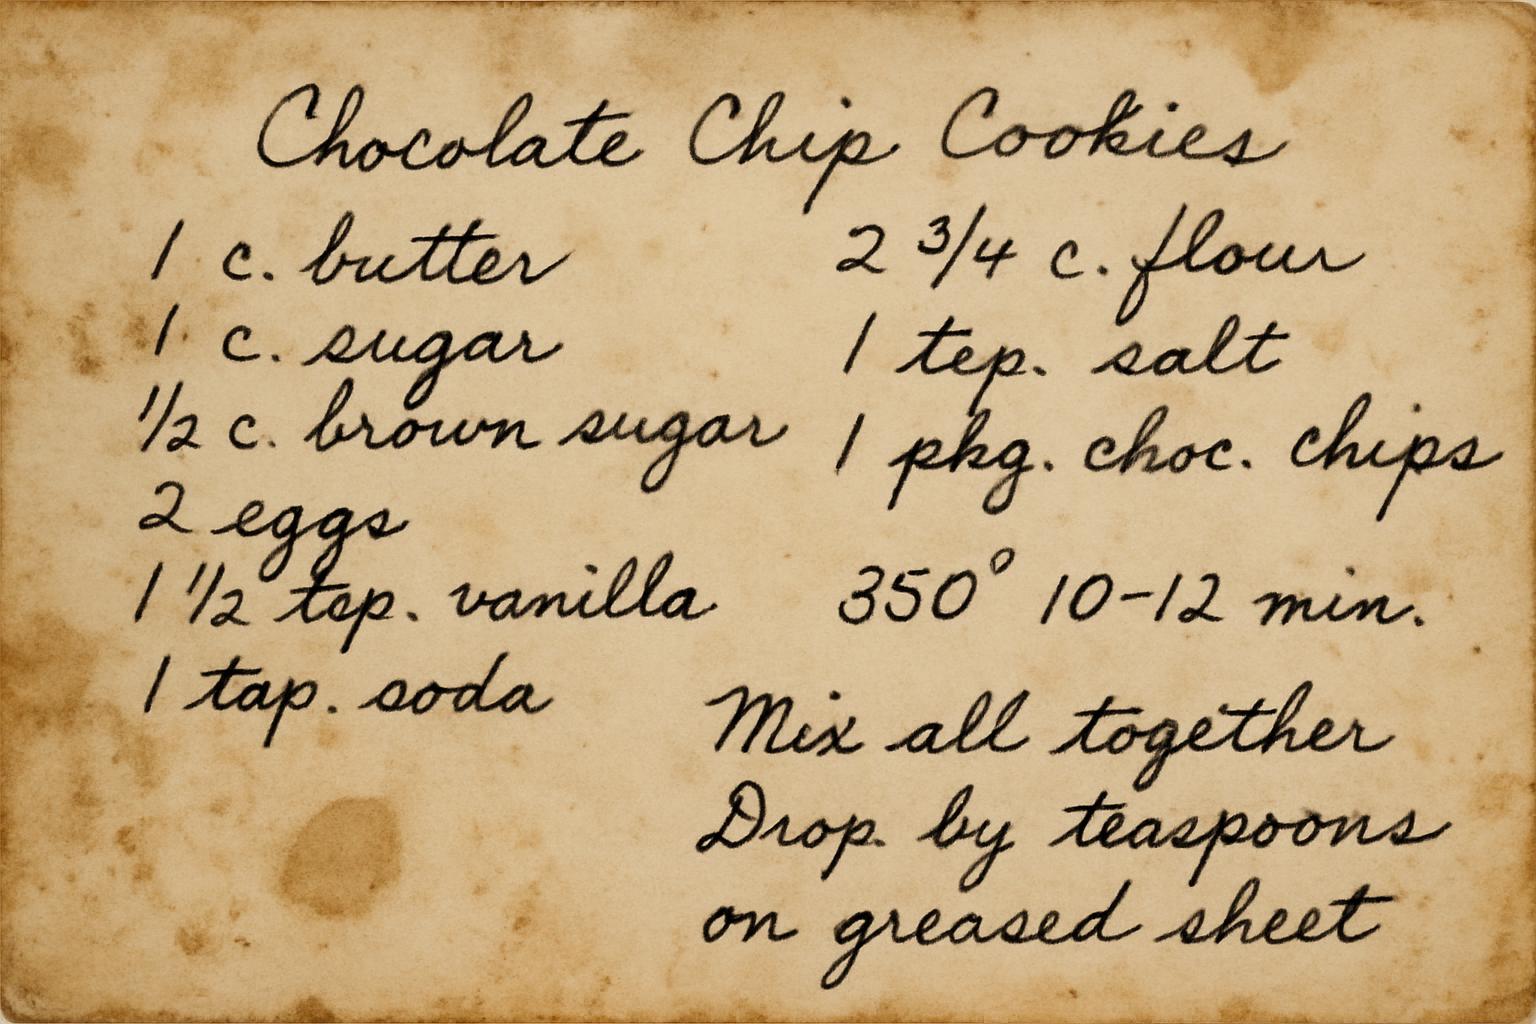 Chocolate Chip Cookies
1 c. butter
1 c. sugar
1/2 c. brown sugar
2 eggs
1 1/2 tsp. vanilla
1 tap. soda
2 3/4 c. flour
1 tep. salt
1 pkg. choc. chips
350° 10-12 min.
Mix all together
Drop. by teaspoons
on greased sheet